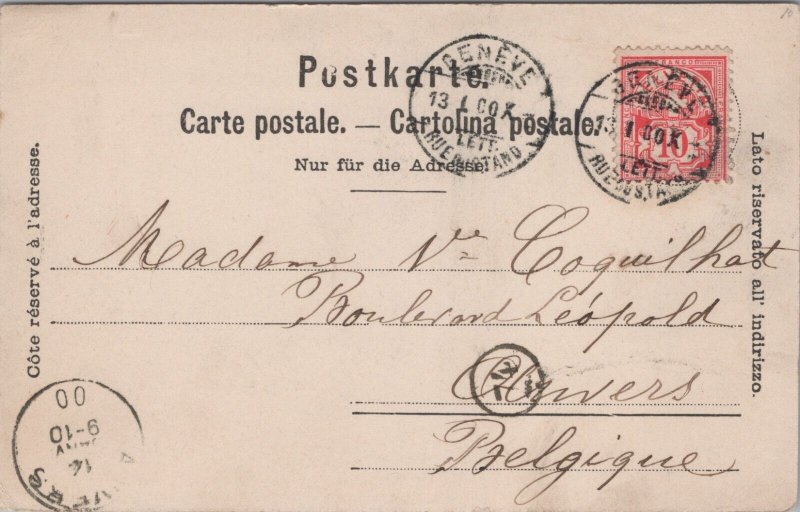 Postkarte.
Carte postale. — Cartolina postale.
Nur für die Adresse.
Côte réservé à l'adresse.
Lato riservato all' indirizzo.
GENÈVE
13 I 00 X
LETT.
GENÈVE
13 I 00 X
LETT.
FRANCO
10
Madame Vve Coquilhat
Boulevard Léopold
Anvers
Belgique
ANVERS
14
JANV
9-10
00